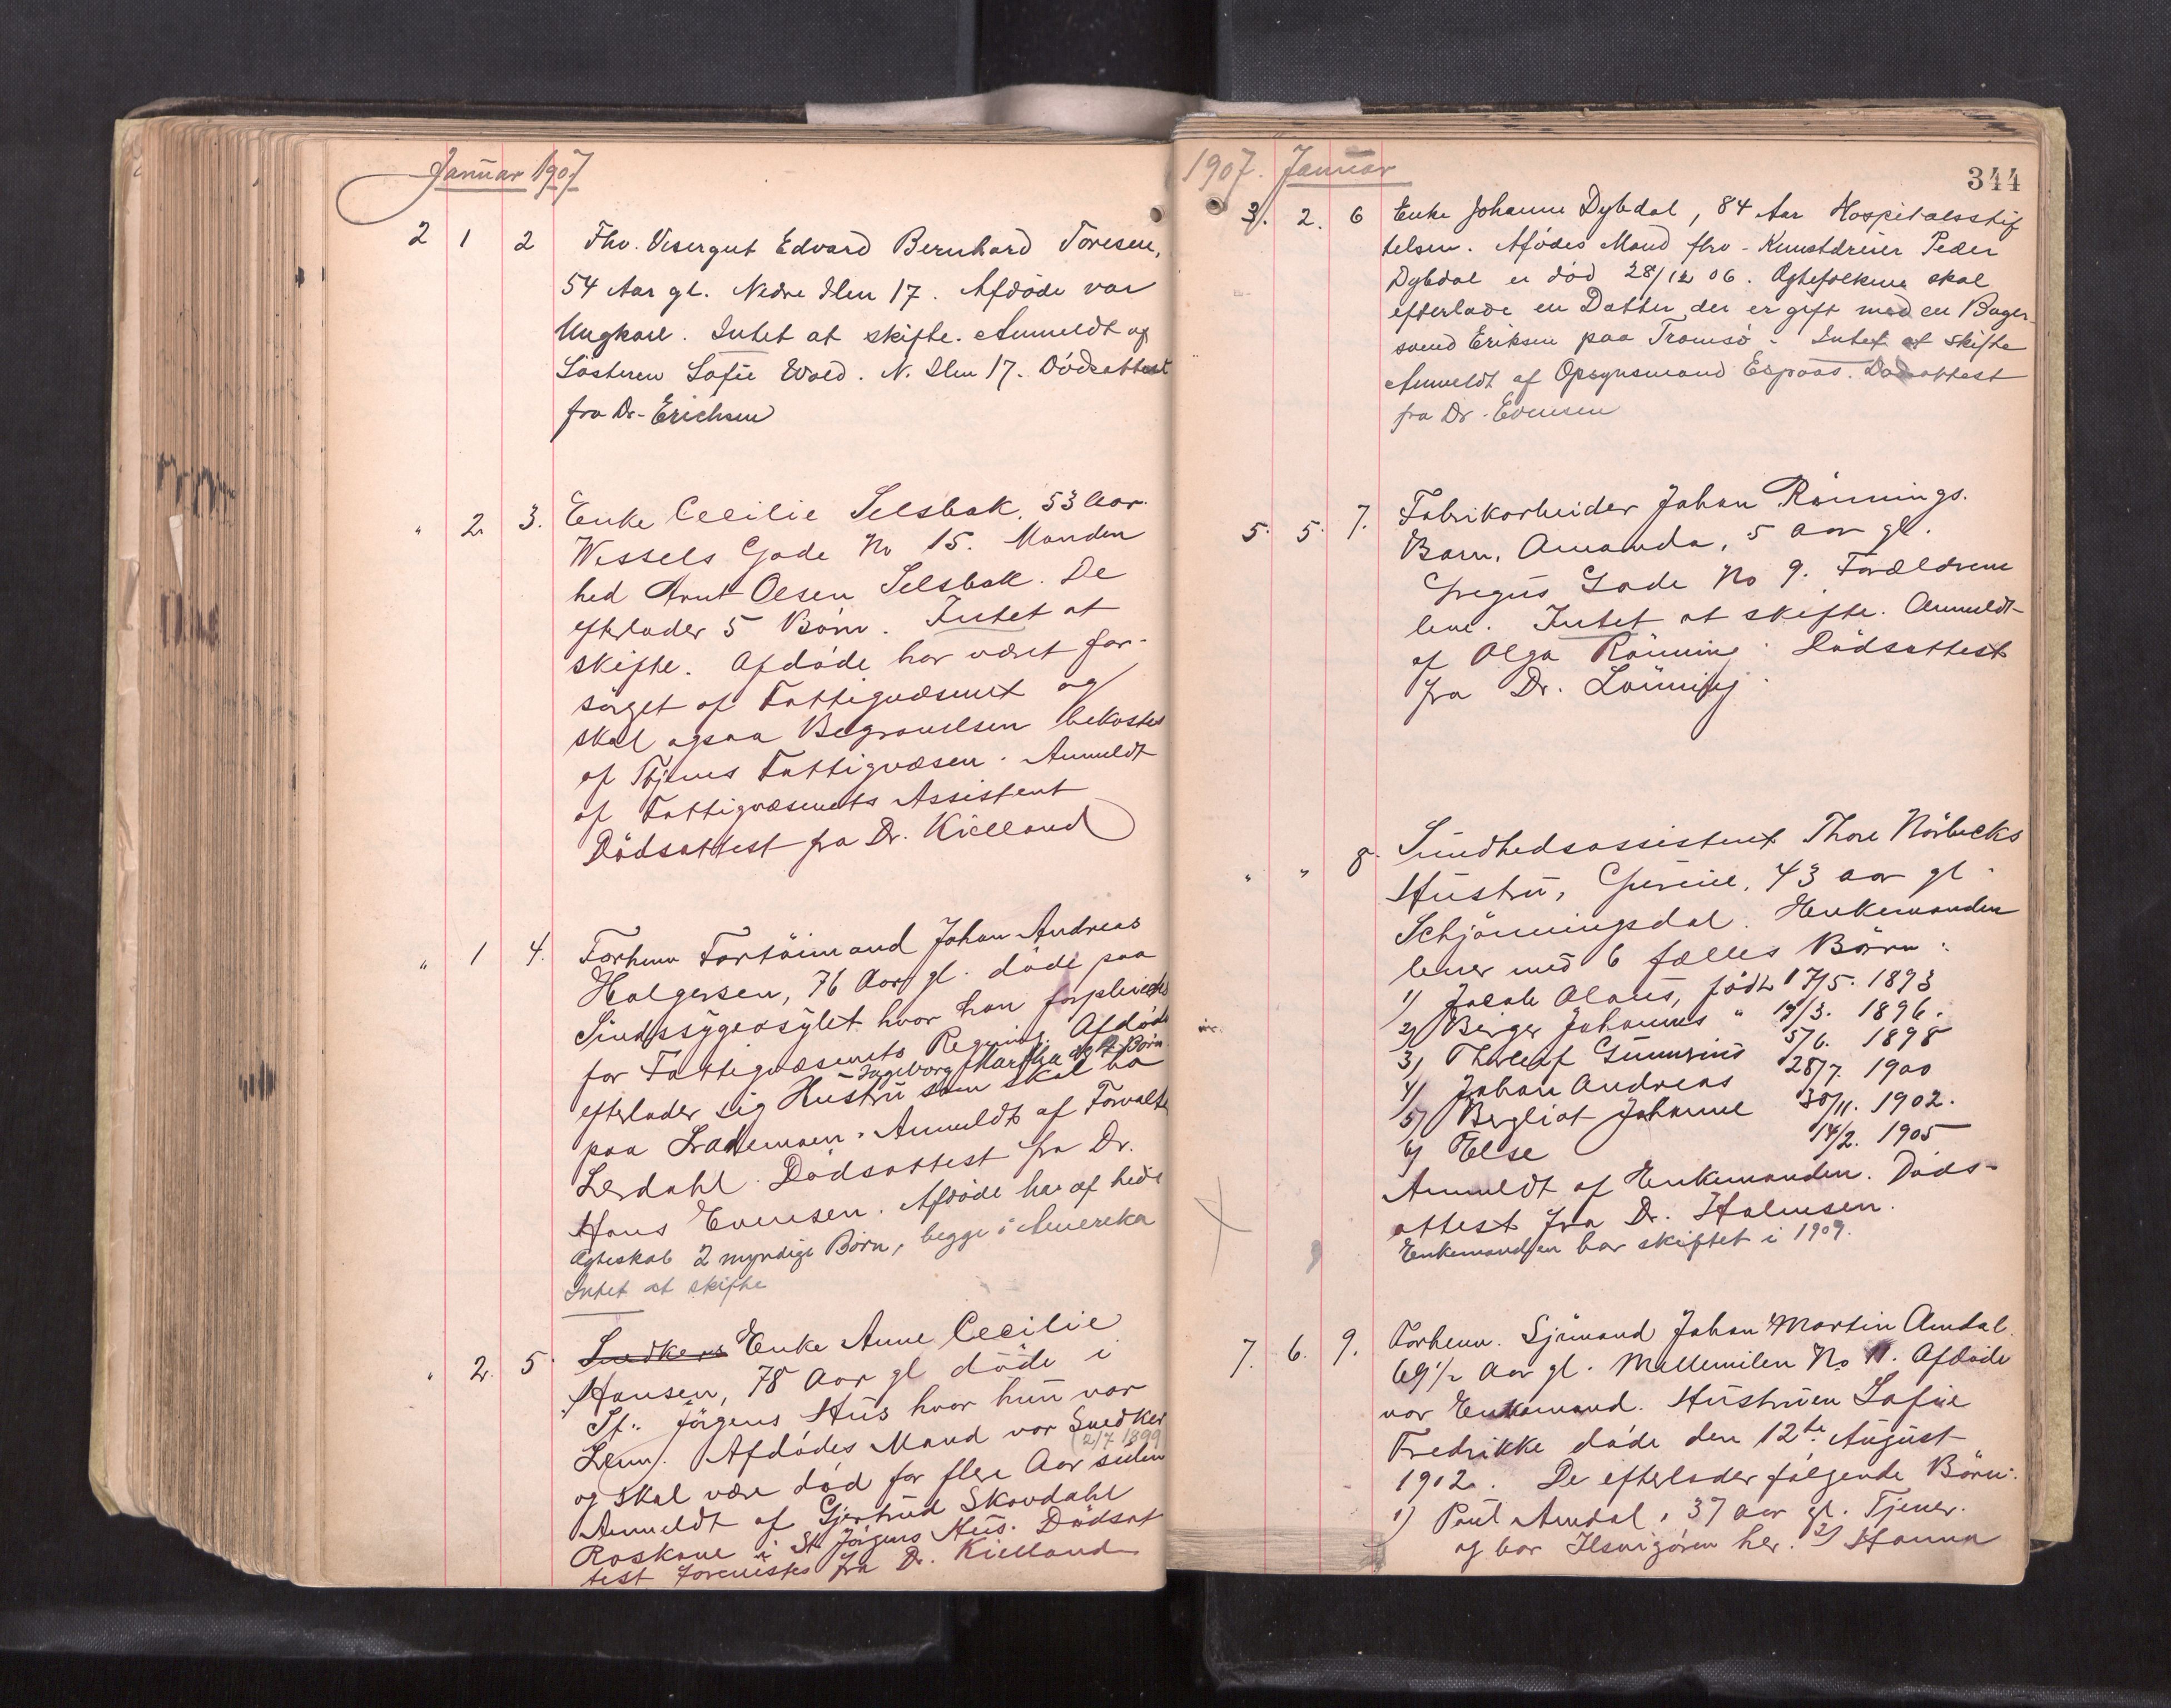 Januar 1907
2 1 2 Fhv. Visergut Edvard Bernhard Toresen,
54 Aar gl. Nedre Ilen 17. Afdöde var
Ungkarl. Intet at skifte. Anmeldt af
Sösteren Sofie Wold. N. Ilen 17. Dödsattest
fra Dr. Erichsen
" 2 3. Enke Cecilie Selsbak, 53 Aar.
Wessels Gade No 15. Manden
hed Arnt Olsen Selsbak. De
efterlader 5 Börn. Intet at
skifte. Afdöde har været for-
sörget af Fattigvæsenet og
skal ogsaa Begravelsen bekostes
af Thjems Fattigvæsen. Anmeldt
af Fattigvæsenets Assistent
Dödsattest fra Dr. Kielland
" 1 4. Forhenv Fortöimand Johan Andreas
Holgersen, 76 Aar gl. döde paa
Sindssygeasylet hvor han forpleiedes
for Fattigvæsenets Regning. Afdöde
Ingeborg Martha og 4 Börn
efterlader sig Hustru som skal bo
paa Lademoen. Anmeldt af Forvalter
Lerdahl. Dödsattest fra Dr.
Hans Evensen. Afdöde har af
Ægteskab 2 myndige Börn, begge i Amereka
Intet at skifte
" 2. 5 Snedkers Enke Anne Cecilie
Hansen, 78 Aar gl döde i
St. Jörgens Hus hvor hun var
Lem. Afdödes Mand var Snedker
(2/7 1899
og skal være död for flere Aar siden
Anmeldt af Gjertrud Skovdahl
Raskone i St. Jörgens Hus. Dödsat
test forevistes fra Dr. Kielland
1907. Januar
344
3. 2. 6 Enke Johanne Dybdal, 84 Aar Hospitalsstif
telsen. Afödes Mand fhv. Kunstdreier Peder
Dybdal er död 28/12 06. Ægtefolkene skal
efterlade en Datter der er gift med en Bager-
svend Eriksen paa Tromsö. Intet at skifte
Anmeldt af Opsynsmand Espaas. Dödsattest
fra Dr. Evensen
5. 5. 7. Fabrikarbeider Johan Rönnings.
Barn, Amanda, 5 Aar gl.
Gregus Gade No 9. Forældrene
leve. Intet at skifte. Anmeldt
af Olga Rönning. Dödsattest
fra Dr. Lönning.
" " 8. Sundhedsassistent Thore Nörbecks
Hustru, 43 Aar gl.
Schjönningsdal. Enkemanden
lever med 6 fælles Börn:
1) Jacob Olaus, födt 17/5. 1893
2) Birger Johannes " 19/3. 1896.
3) Thorleif Gunnerius 5/6. 1898
4) Johan Andreas 28/7. 1900
5) Bergliot Johanne 30/11. 1902.
6) Else 14/2. 1905
Anmeldt af Enkemanden. Döds-
attest fra Dr. Holmsen.
Enkemanden har skiftet i 1909.
7. 6. 9. Forhenv. Sjömand Johan Martin Amdal.
69 1/2 Aar gl. Mellemilen No 11. Afdöde
var Enkemand. Hustruen Sofie
Fredrikke döde den 12te August
1902. De efterlader fölgende Börn:
1) Paul Amdal, 37 Aar gl. Tjener.
og bor Ilsvigören her. 2) Hanna